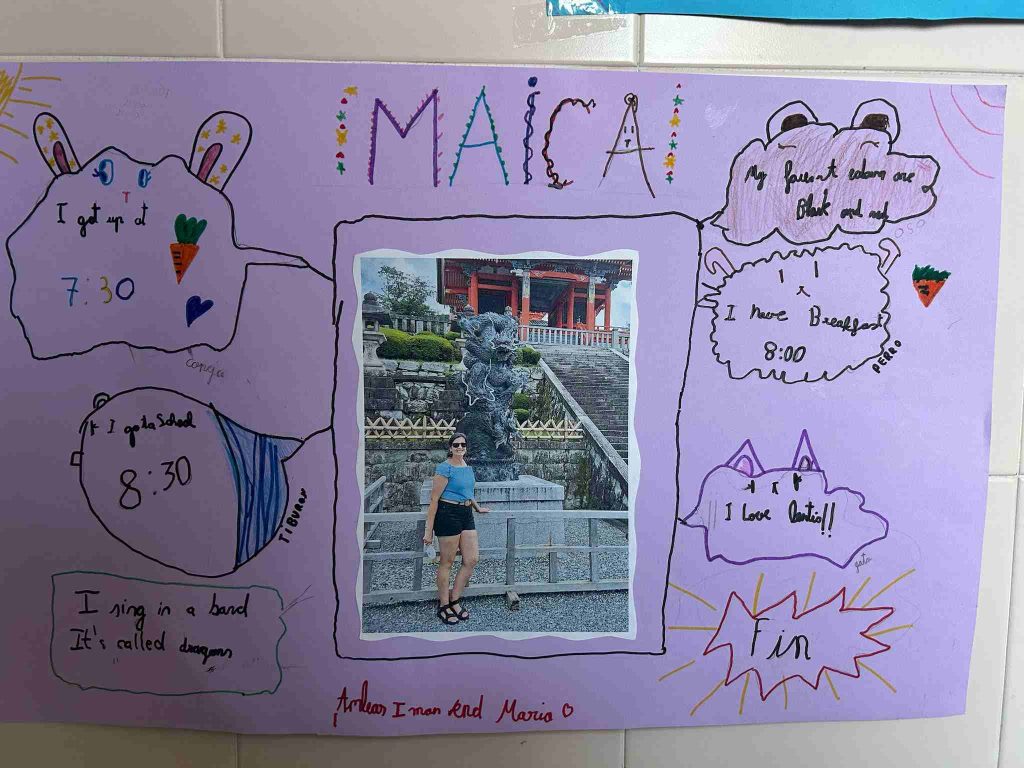 ¡MAICA!
I get up at
7:30
My favourit colours are
Black and red
oso
I have Breakfast
8:00
PERRO
I go to School
8:30
TIBURON
I Love
gato
I sing in a band
It's called dragons
Fin
Iman And Maria